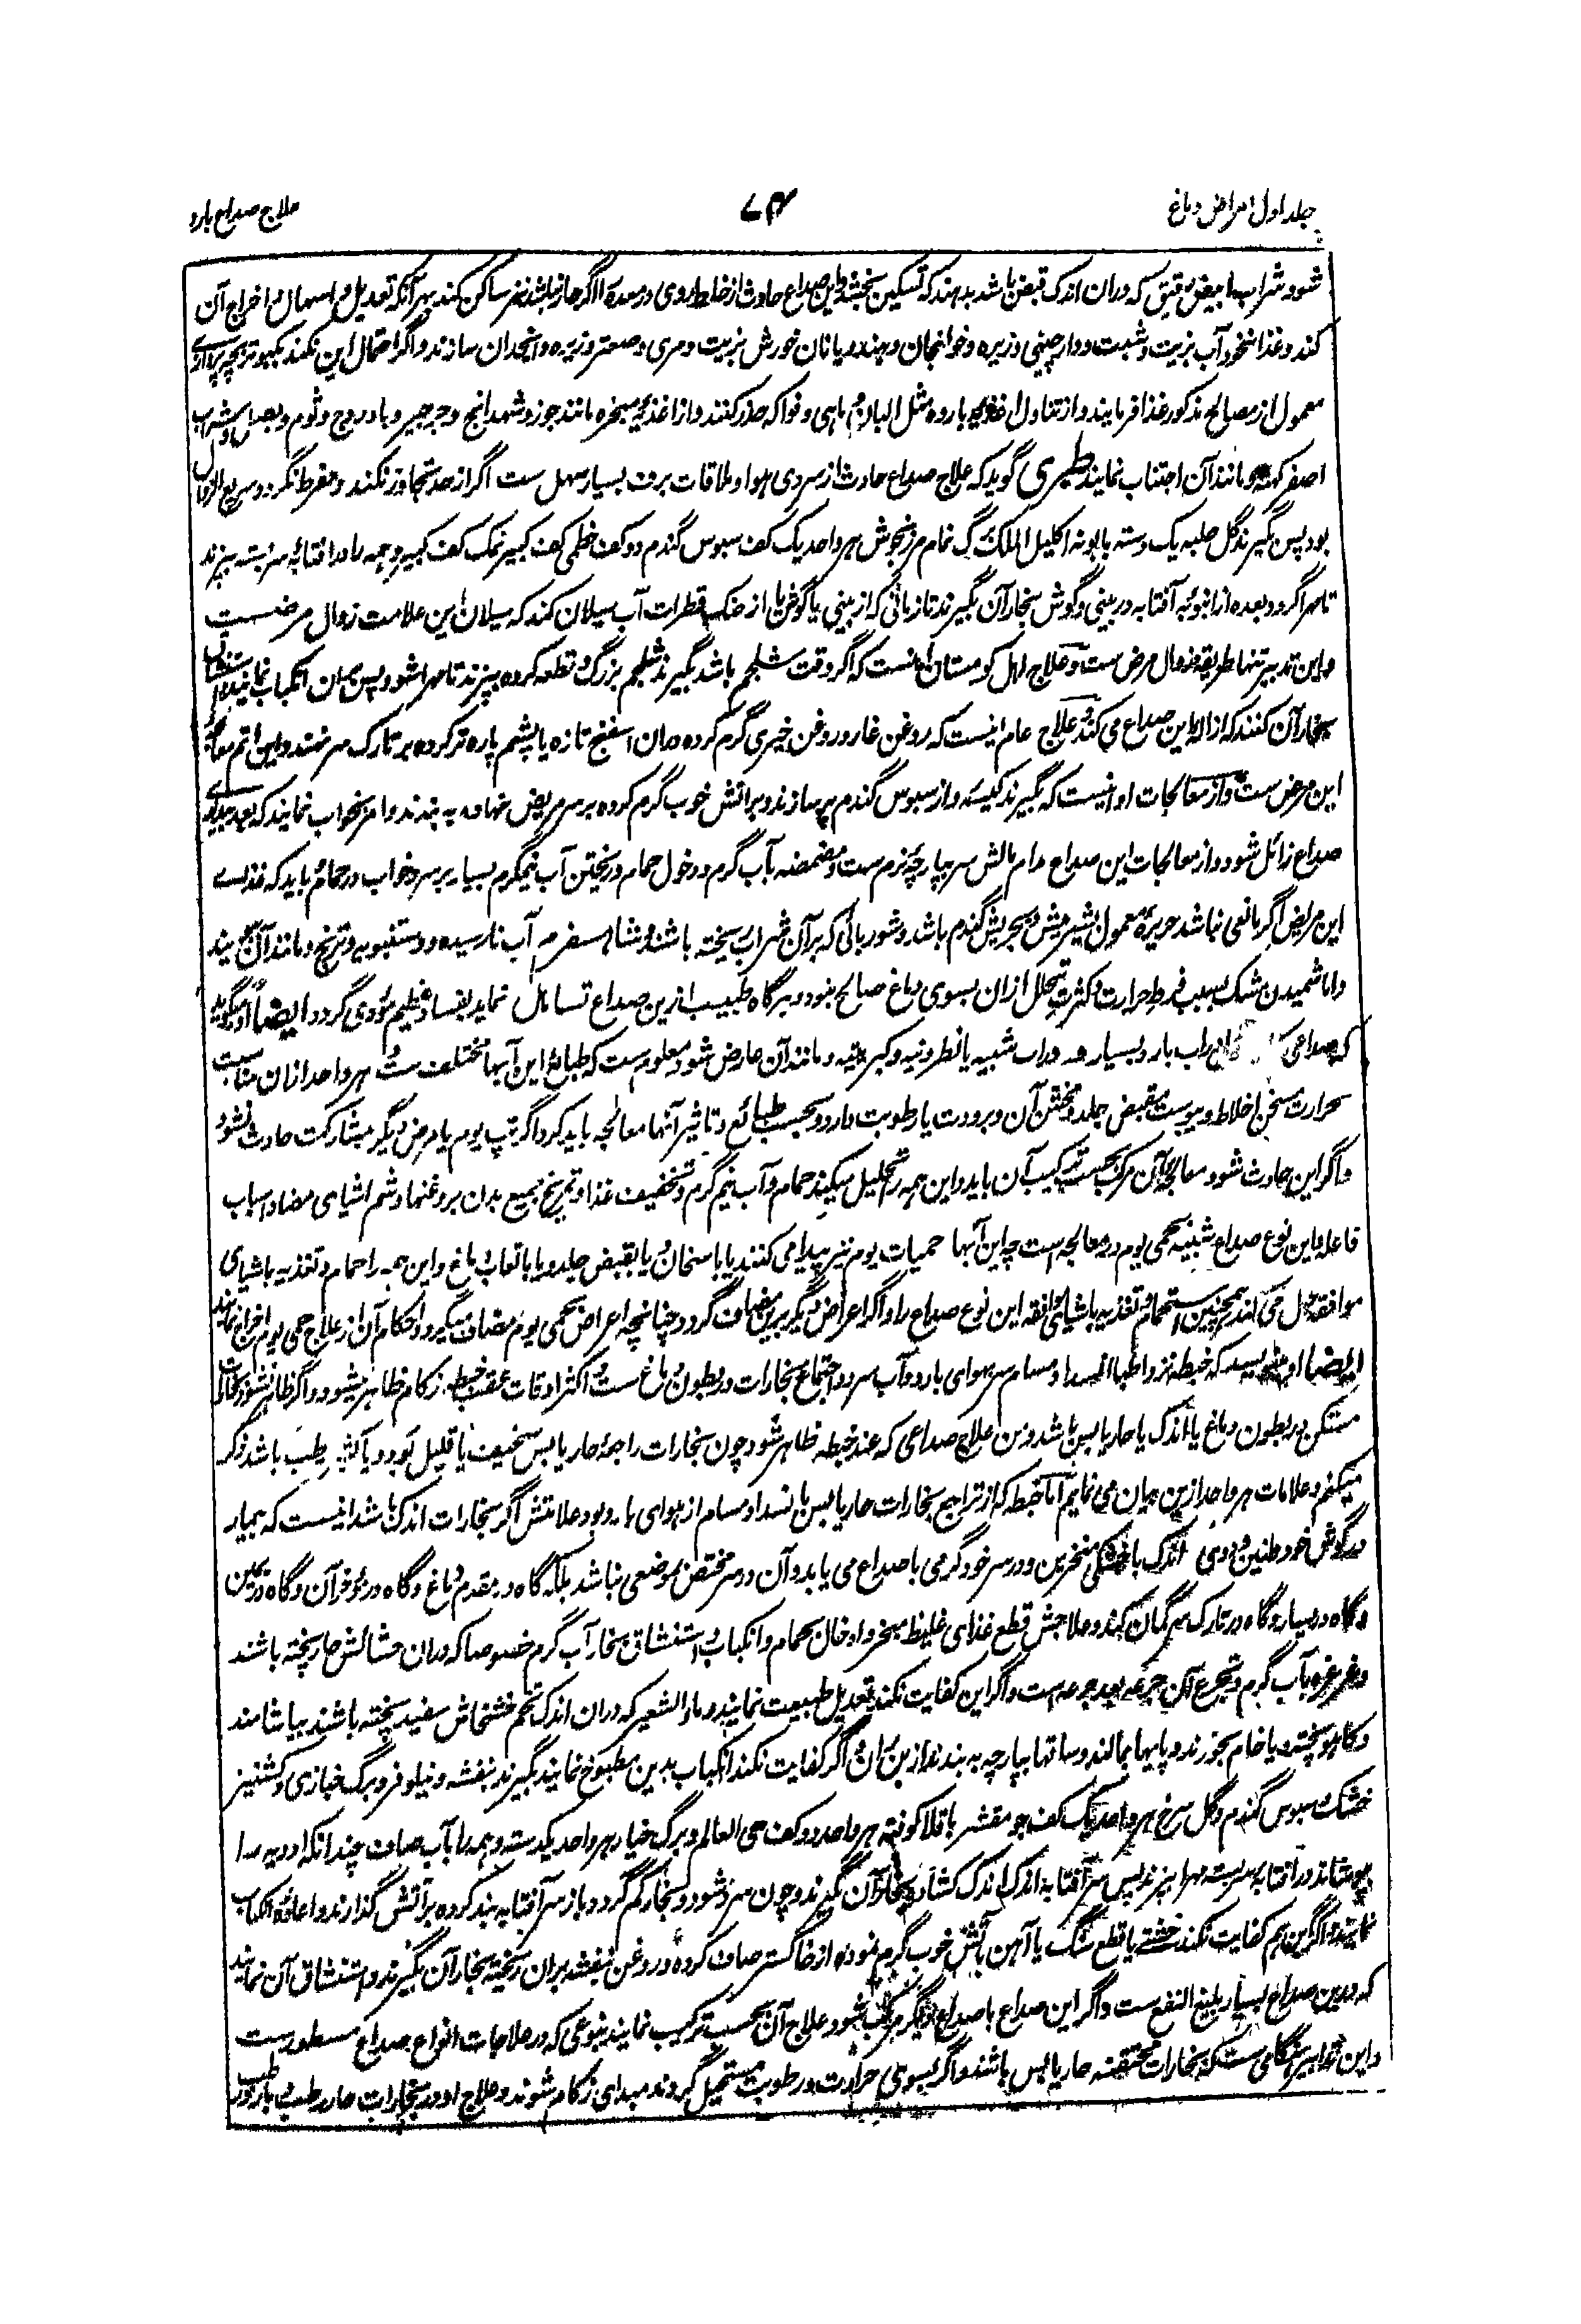 جلد اول امراض دماغ
۷۴
علاج صداع بارد
شود شراب ابیض رقیق که دران اندک قبض باشد بدهند که تسکین بخشد و این صداع حادث از خلط روی در معده اگر حار باشد نیز ساکن کند بهر آنکه تعدیل و اسهال و اخراج آن
کند و غذا نخود آب بزیت و شبت و دارچینی و زیره و خولنجان و چندر یا نان خورش بزیت و مری و صعتر و زیره و انجدان سازند و اگر احتمال این نکند بکبوتر بچه
معمول از مصالح مذکور غذا فرمایند و از تناول اغذیه بارده مثل البان و ماهی و فواکه حذر کنند و از اغذیه مبخره مانند جوز و شهدانج و جرجیر و بادروج و ثوم و بصل و شراب
اصفر کهنه و مانند آن اجتناب نمایند طبری گوید که علاج صداع حادث از سردی هوا و ملاقات برف بسیار سهل ست اگر از حد تجاوز نکند و مفرط نگردد و سریع الزوال
بود پس بگیرند گل حلبه یک دسته بابونه اکلیل الملک برگ نمام مرزنجوش هر واحد یک کف سبوس گندم دو کف خطمی کف کبیر نمک کف کبیر و همه را در آفتابه سر بسته بپزند
تا مهرا گردد بعده از انبوبه آفتابه در بینی و گوش بخار آن بگیرند تا زمانی که از بینی یا گوش یا از حنک قطرات آب سیلان کند که سیلان این علامت زوال مرض ست
و این تدبیر تنها طریقه زوال مرض ست و علاج اهل کوهستان آنست که اگر وقت شلجم باشد بگیرند شلجم بزرگ و قطعه کرده بپزند تا مهرا شود پس بران انکباب نمایند و استنشاق
بخار آن کنند که ازاله این صداع می کند و علاج عام اینست که روغن غار و روغن خیری گرم کرده دران اسفنج تازه یا پشم پاره تر کرده بر تارک سر نهند و این اتم معالجه
این مرض ست و از معالجات او اینست که بگیرند کیسه و از سبوس گندم پر سازند و بر آتش خوب گرم کرده بر سر مریض نهاده به بندند و امر بخواب نمایند که بعد بیداری
صداع زائل شود و از معالجات این صداع دوام مالش سر بپارچه نرم ست و مضمضه بآب گرم و دخول حمام و ریختن آب نیمگرم بسیار بر سر و خواب در حمام و باید که غذای
این مریض اگر مانعی نباشد حریره معمول بشیر میش و بجریش گندم باشد و شوربائی که بر آن شراب ریخته باشند و شاهسفرم آب نارسیده و دستنبویه و ترنج و مانند آن بویند
و اما شمیدن مشک بسبب فرط حرارت و کثرت تحلل ازان بسوی دماغ صالح نبود و هرگاه طبیب ازین صداع تساهل نماید بفساد عظیم مؤدی گردد ایضاً او میگوید
که صداعی بارد بسیار شبیه یا نطرونیه و کبریتیه و مانند آن عارض شود معلوم ست که طبائع این آبها مختلف ست و هر واحد ازان مناسبت
بحرارت مسخن اخلاط و یبوست مقبض جلد و مخشن آن و برودت یا رطوبت دارد و بحسب طبائع و تاثیر آنها معالجه باید کرد اگر تپ یوم یا مرض دیگر بمشارکت حادث نشود
و اگر این حادث شود معالجه آن مرکب بحسب ترکیب آن باید و این همه را تحلیل میکند حمام و آب نیم گرم و تخفیف غذا و تمریخ جمیع بدن بروغنها و شم اشیای مضاد اسباب
فاعله و این نوع صداع شبیه بحمی یوم در معالجه است چه این آبها حمیات یوم نیز پیدا می کنند یا باسخان و یا بقبض جلد و یا باتعاب دماغ و این همه را حمام و تغذیه باشیای
موافقه حل می کند همچنین استحمام و تغذیه باشیای موافقه این نوع صداع را و اگر اعراض دیگر برین مضاف گردد چنانچه اعراض بحمی یوم مضاف میگیرد و احکام آن از علاج حمی یوم اخراج نمایند
ایضاً او میگوید که خبطه نزد اطبا انسداد مسام سر بهوای بارد و آب سرد و اجتماع بخارات در بطون دماغ ست و اکثر اوقات عقب خبطه زکام ظاهر میشود و اگر ظاهر نشود بخارات
مستکن در بطون دماغ یا اندک یا حار یابس باشد و من علاج صداعی که عند خبطه ظاهر شود چون بخارات راجعه حار یابس سخیف یا قلیل بود و یا کثیر رطب باشد ذکر
میکنم و علامات هر واحد ازین بیان می نمایم اما خبطه که از تراجع بخارات حار یابس بانسداد مسام از هوای بارد بود علامتش اگر بخارات اندک باشد اینست که بیمار
در گوش خود طنین و دوی اندک با خشکی منخرین و در سر خود گرمی با صداع می یابد و آن در سر مختص بموضعی نباشد بلکه گاه در مقدم دماغ و گاه در مؤخر آن و گاه در یمین
و گاه در یسار و گاه در تارک سر گمان کند و علاجش قطع غذای غلیظ مبخر و ادخال بحمام و انکباب و استنشاق بخار آب گرم خصوصاً که دران حشائش حار پخته باشند
و غرغره بآب گرم و تجرع آن جرعه بعد جرعه ست و اگر این کفایت نکند تعدیل طبیعت نمایند و ماء الشعیر که دران اندک تخم خشخاش سفید پخته باشند بیاشامند
و کاهو پخته و یا خام بخورند و پایها بمالند و ساقها بپارچه به بندند از بن ران و اگر کفایت نکند انکباب بدین مطبوخ نمایند بگیرند بنفشه و نیلوفر و برگ خبازی و کشنیز
خشک و سبوس گندم و گل سرخ هر واحد یک کف جو مقشر باقلا کوفته هر واحد دو کف حی العالم و برگ خیار هر واحد یکدسته و همه را بآب صاف چندانکه ادویه را
بپوشاند در آفتابه سر بست مهرا بپزند پس سر آفتابه اندک اندک کشاده بخار آن گیرند و چون سرد شود و بخار کم گردد باز سر آفتابه بند کرده بر آتش گذارند و اعاده انکباب
نمایند و اگر این هم کفایت نکند خشتی یا قطع سنگ یا آهن بآتش خوب گرم نموده از خاکستر صاف کرده و روغن بنفشه بران ریخته بخار آن بگیرند و استنشاق آن نمایند
که درین صداع بسیار بلیغ النفع ست و اگر این صداع با صداع دیگر مرکب شود علاج آن بحسب ترکیب نمایند بنوعی که در علاجات انواع صداع مسطور ست
و این تدابیر هنگامی ست که بخارات محتقنه حار یابس باشند و اگر بسوی حرارت و رطوبت مستحیل گردند مبدای زکام شوند و علاج او در بخارات حار رطب